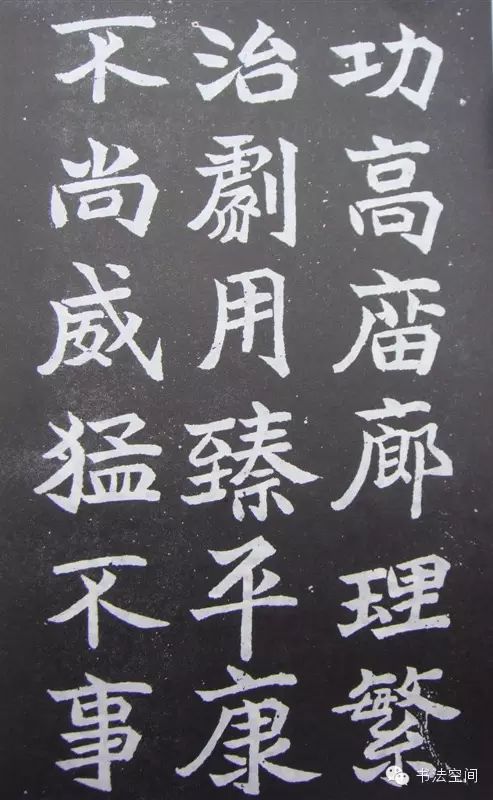 功高庿廊理繁
治劇用臻平康
不尚威猛不事
书法空间